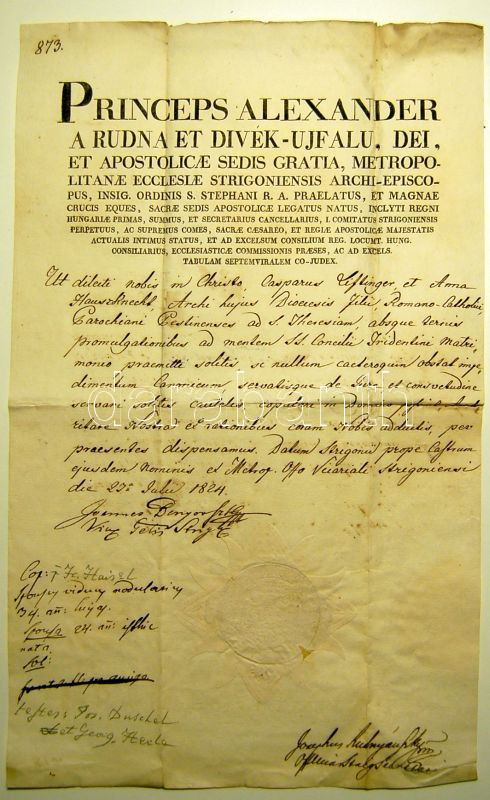 873.
PRINCEPS ALEXANDER
A RUDNA ET DIVÉK-UJFALU, DEI,
ET APOSTOLICÆ SEDIS GRATIA, METROPO-
LITANÆ ECCLESIÆ STRIGONIENSIS ARCHI-EPISCO-
PUS, INSIG. ORDINIS S. STEPHANI R. A. PRAELATUS, ET MAGNAE
CRUCIS EQUES, SACRÆ SEDIS APOSTOLICÆ LEGATUS NATUS, INCLYTI REGNI
HUNGARIÆ PRIMAS, SUMMUS, ET SECRETARIUS CANCELLARIUS, I. COMITATUS STRIGONIENSIS
PERPETUUS, AC SUPREMUS COMES, SACRÆ CÆSAREO, ET REGIÆ APOSTOLICÆ MAJESTATIS
ACTUALIS INTIMUS STATUS, ET AD EXCELSUM CONSILIUM REG. LOCUMT. HUNG.
CONSILIARIUS, ECCLESIASTICÆ COMMISSIONIS PRÆSES, AC AD EXCELS.
TABULAM SEPTEMVIRALEM CO-JUDEX.
Ut dilecti nobis in Christo, Casparus et Anna
Hausknecht Archi hujus Dioecesis filii, Romano-Catholici
Parochiani Pestinenses ad S. Theresiam, absque ternis
promulgationibus ad mentem SS. Concilii Tridentini Matri
monio praemitti solitis si nullum caeteroquin obstat impe
dimentum Canonicum, servatisque de Jure et consvetudine
servari solitis copulari
ritate Nostra et rationibus coram Nobis adductis, per
praesentes dispensamus. Datum Strigonii prope Castrum
ejusdem Nominis ex Metrop. Offo Vicariali Strigoniensi
die 23. Julii 1824.
Joannes
Cop:
Sponsus viduus
34. an:
Sponsa 24. an:
nata
testes: Jos. Duschel
et Georg.
Josephus
darabanth